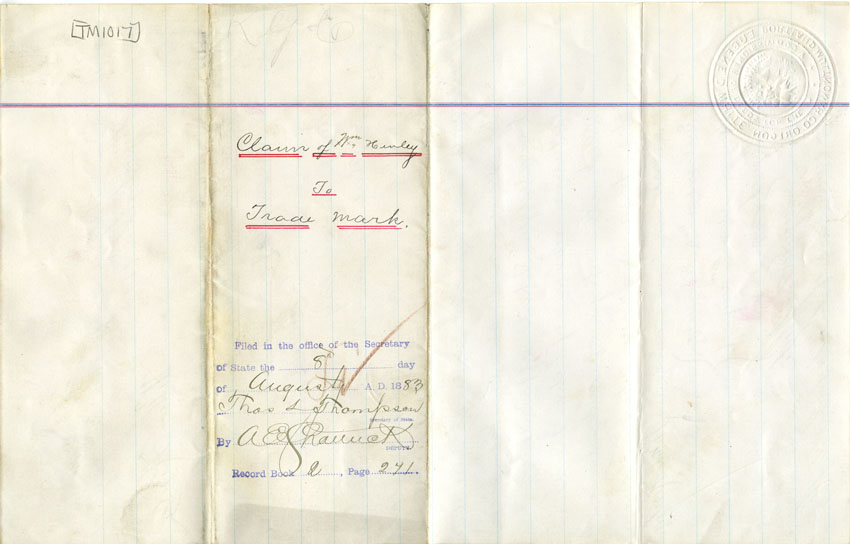 [TM1017]
Claim of Wm Henley
To
Trade Mark.
Filed in the office of the Secretary
of State the 8 day
of August A. D. 1883
Thos L Thompson
Secretary of State.
By
DEPUTY.
Record Book 2, Page 271.